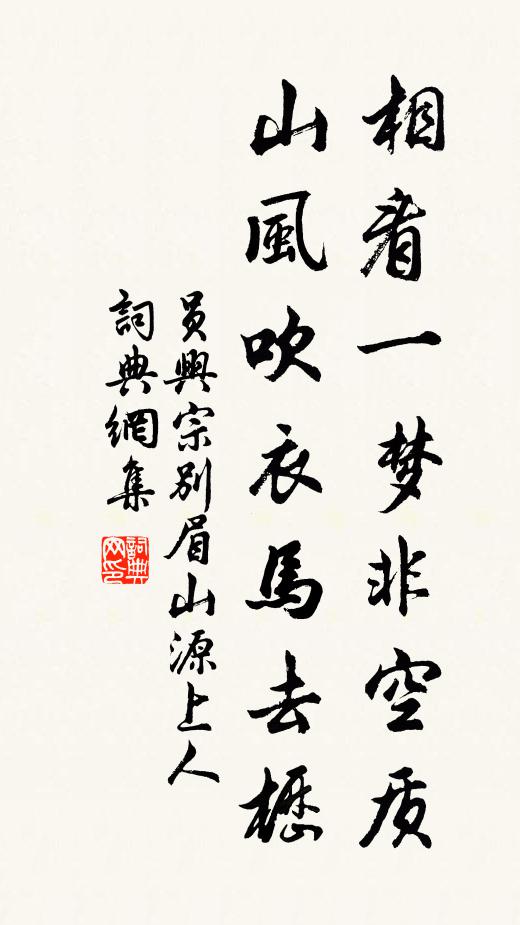 相看一梦非空质
山風吹衣馬去櫪
员興宗別眉山源上人
詞典網集
詞典网印